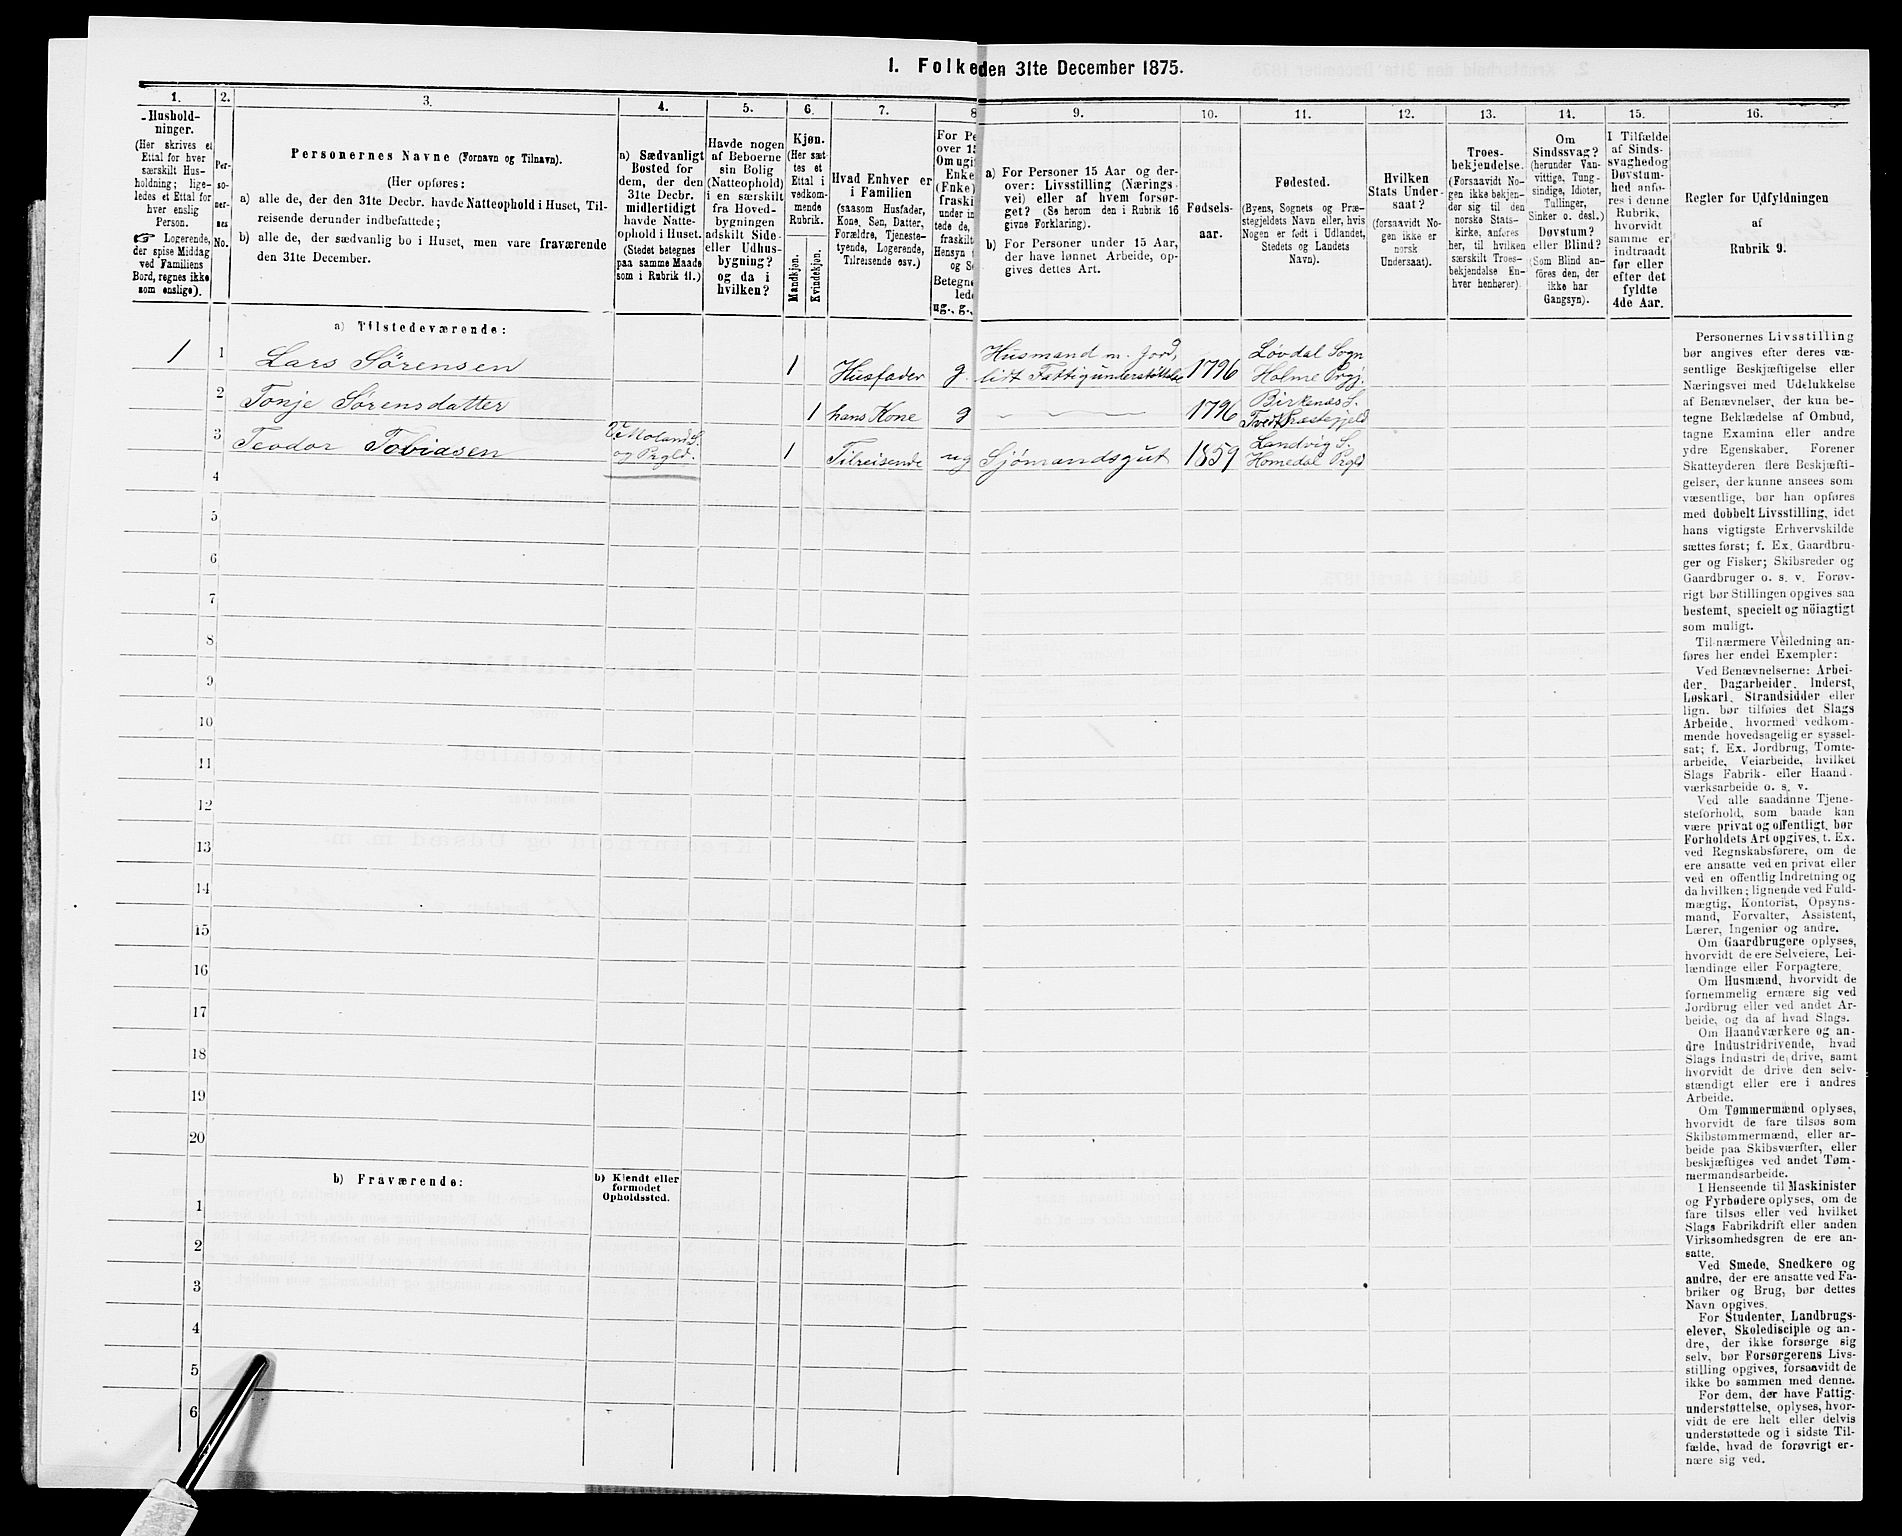 1. Folke
den 31te December 1875.
1.
2.
3.
4.
5.
6.
7.
8
9.
10.
11.
12.
13.
14.
15.
16.
Hushold-
ninger.
(Her skrives et
Ettal for hver
særskilt Hus-
holdning; lige-
ledes et Ettal for
hver enslig
Person.
☞ Logerende,
der spise Middag
ved Familiens
Bord, regnes ikke
som enslige).
Per-
so-
ner-
nes
No.
Personernes Navne (Fornavn og Tilnavn).
(Her opføres:
a) alle de, der den 31te Decbr. havde Natteophold i Huset, Til-
reisende derunder indbefattede;
b) alle de, der sædvanlig bo i Huset, men vare fraværende
den 31te December.
a) Sædvanligt
Bosted for
dem, der den
31te Decbr.
midlertidigt
havde Natte-
ophold i Huset.
(Stedet betegnes
paa samme Maade
som i Rubrik 11.)
Havde nogen
af Beboerne
sin Bolig
(Natteophold)
i en særskilt
fra Hoved-
bygningen
adskilt Side-
eller Udhus-
bygning?
og da i
hvilken?
Kjøn.
(Her sæt-
tes et
Ettal i
vedkom-
mende
Rubrik.
Mandkjøn.
Kvindekjøn.
Hvad Enhver er
i Familien
(saasom Husfader,
Kone, Søn, Datter,
Forældre, Tjeneste-
tyende, Logerende,
Tilreisende osv.)
For Pe
over 15
Om ugif
Enke
(Fnke)
fraski
under in
tede de,
fraskilt
Hensyn t
og Se
Betegne
lede
ug., g.,
a) For Personer 15 Aar og der-
over: Livsstilling (Nærings-
vei) eller af hvem forsør-
get? (Se herom den i Rubrik 16
givne Forklaring).
b) For Personer under 15 Aar,
der have lønnet Arbeide, op-
gives dettes Art.
Fødsels-
aar.
Fødested.
(Byens, Sognets og Præ-
stegjeldets Navn eller, hvis
Nogen er født i Udlandet,
Stedets og Landets
Navn).
Hvilken
Stats Under-
saat?
(forsaavidt No-
gen ikke er
norsk
Undersaat).
Troes-
bekjendelse.
(Forsaavidt No-
gen ikke bekjen-
der sig til den
norske Stats-
kirke, anføres
her, til hvilken
særskilt Troes-
bekjendelse En-
hver henhører).
Om
Sindssvag?
(herunder Van-
vittige, Tung-
sindige, Idioter,
Tullinger,
Sinker o. desl.)
Døvstum?
eller Blind?
(Som Blind an-
føres den, der
ikke har
Gangsyn).
I Tilfælde
af Sinds-
svaghed og
Døvstum-
hed anfø-
res i denne
Rubrik,
hvorvidt
samme er
indtraadt
før eller
efter det
fyldte
4de Aar.
Regler for Udfyldningen
af
Rubrik 9.
a) Tilstedeværende:
1
1 Lars Sörensen 1 Husfader g. Husmand m. Jord, lidt Fattigunderstöttelse 1796 Løvdal Sogn Holme Prgj.
2 Tonje Sörensdatter 1 hans Kone g 1796 Birkenæs S. Tvedt Præstegjeld
3 Teodor Tobiasen V. Moland S. og Prgld. 1 Tilreisende ug Sjömandsgut 1859 Landvig S. Homedal Prgld
4
5
6
7
8
9
10
11
12
13
14
15
16
17
18
19
20
b) Fraværende:
b) Kjendt eller
formodet
Opholdssted.
1
2
3
4
5
6
Personernes Livsstilling
bør angives efter deres væ-
sentlige Beskjæftigelse eller
Næringsvei med Udelukkelse
af Benævnelser, der kun be-
tegne Beklædelse af Ombud,
tagne Examina eller andre
ydre Egenskaber. Forener
Skatteyderen flere Beskjæfti-
gelser, der kunne ansees som
væsentlige, bør han opføres
med dobbelt Livsstilling, idet
hans vigtigste Erhvervskilde
sættes først; f. Ex. Gaardbru-
ger og Fisker; Skibsreder og
Gaardbruger o. s. v. Forøv-
rigt bør Stillingen opgives saa
bestemt, specielt og nöiagtigt
som muligt.
Til nærmere Veiledning an-
føres her endel Exempler:
Ved Benævnelserne: Arbei-
der, Dagarbeider, Inderst,
Løskarl, Strandsidder eller
lign. bør tilføies det Slags
Arbeide, hvormed vedkom-
mende hovedsagelig er syssel-
sat; f. Ex. Jordbrug, Tomte-
arbeide, Veiarbeide, hvilket
Slags Fabrik- eller Haand-
værksarbeide o. s. v.
Ved alle saadanne Tjene-
steforhold, som baade kan
være privat og offentligt, bør
Forholdets Art opgives, t. Ex.
ved Regnskabsførere, om de
ere ansatte ved en privat eller
ved en offentlig Indretning og
da hvilken; lignende ved Fuld-
mægtig, Kontorist, Opsyns-
mand, Forvalter, Assistent,
Lærer, Ingeniør og andre.
Om Gaardbrugere oplyses,
hvorvidt de ere Selveiere, Lei-
lændinge eller Forpagtere.
Om Husmænd, hvorvidt de
fornemmelig ernære sig ved
Jordbrug eller ved andet Ar-
beide, og da af hvad Slags.
Om Haandværkere og an-
dre Industridrivende, hvad
Slags Industri de drive, samt
hvorvidt de drive den selv-
stændigt eller ere i andres
Arbeide.
Om Tømmermænd oplyses,
hvorvidt de fare tilsøs som
Skibstømmermænd, eller ar-
beide paa Skibsværfter, eller
beskjæftiges ved andet Tøm-
mermandsarbeide.
I Henseende til Maskinister
og Fyrbødere oplyses, om de
fare tilsøs eller ved hvilket
Slags Fabrikdrift eller anden
Virksomhedsgren de ere an-
satte.
Ved Smede, Snedkere og
andre, der ere ansatte ved Fa-
briker og Brug, bør dettes
Navn opgives.
For Studenter, Landbrugs-
elever, Skoledisciple og an-
dre, der ikke forsørge sig
selv, bør Forsørgerens Livs-
stilling opgives, forsaavidt de
ikke bo sammen med denne.
For dem, der have Fattig-
understøttelse, oplyses, hvor-
vidt de ere helt eller delvis
understøttede og i sidste Til-
fælde, hvad de forøvrigt er-
nære sig ved.